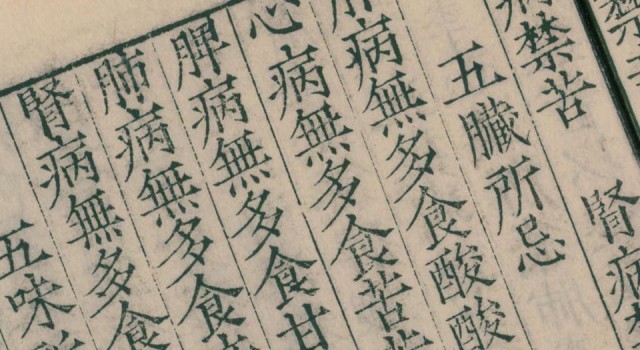 禁
病禁苦
腎病
五臟所忌
肝病無多食酸酸
心病無多食苦苦
脾病無多食甘
肺病無多食
腎病無多食
五味所